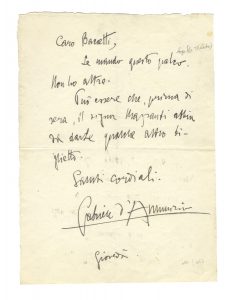 Caro Baretti,
Le mando questo palco.
Non ho altro.
Può essere che, prima di
sera, il signor Magranti abbia
da darle qualche altro bi-
glietto.
Saluti cordiali.
Gabriele d'Annunzio
Giovedì